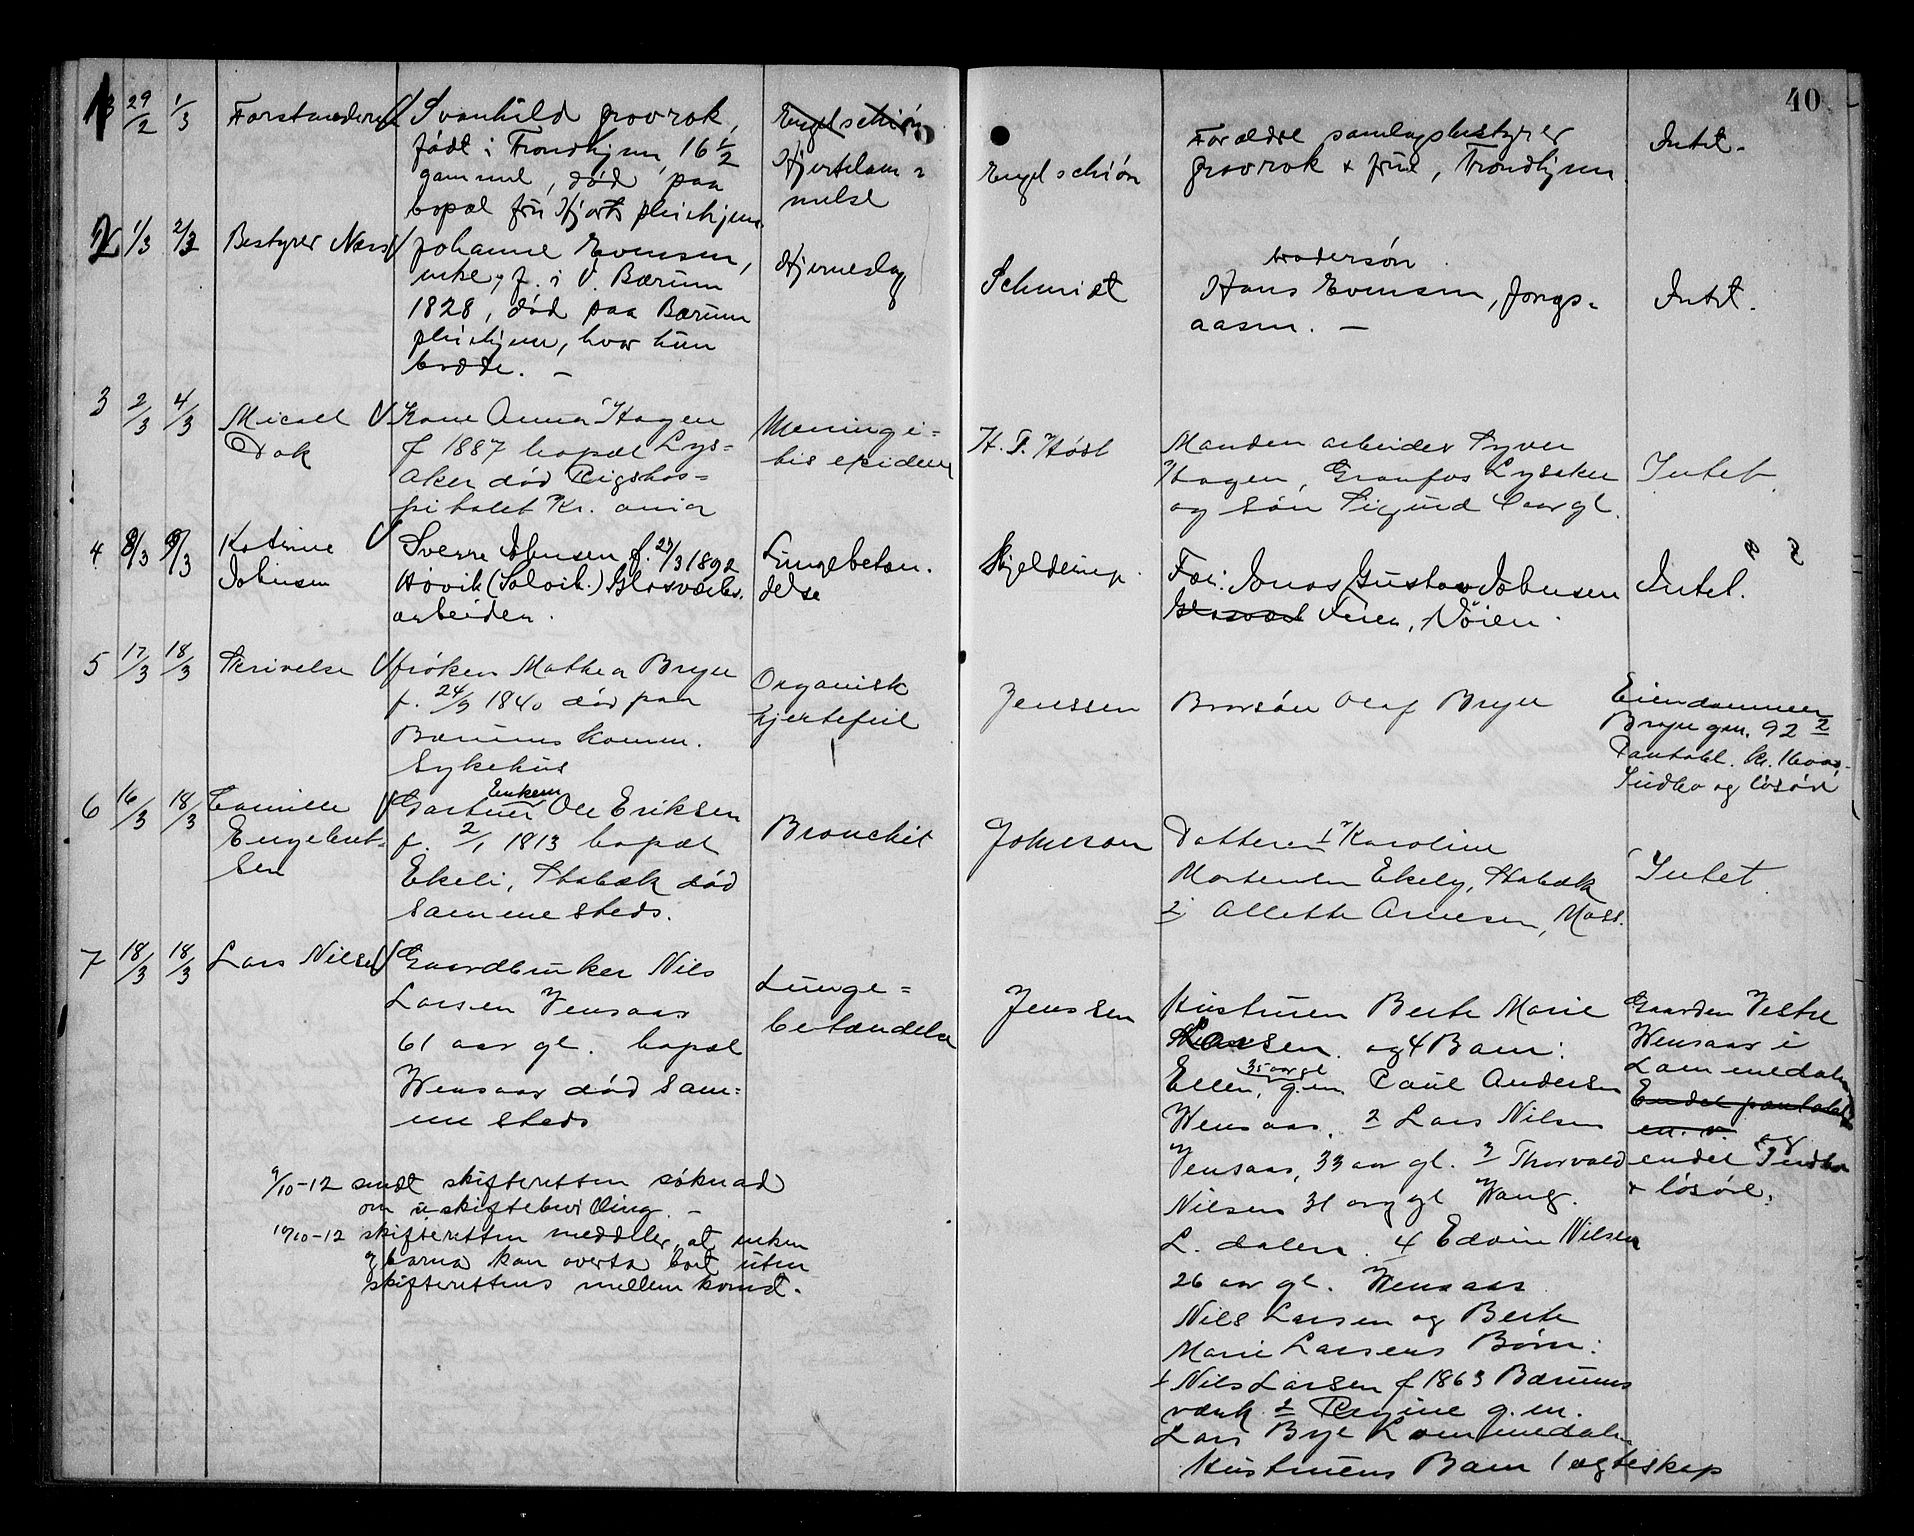 40
29/2 1/3 Forstanderen Svanhild Grovrok,
født i Trondhjem, 16 1/2
gammel, død paa
bopæl fru Hjorts pleiehjem
Engelschiøn
Hjertelam =
melse
Engelschiøn
Forældre samlagsbestyrer
Grovrok & frue, Trondhjem
Intet.
2 1/3 2/3 Bestyrer Næss Johanne Evensen,
enke, f. i V. Bærum
1828, død paa Bærum
pleiehjem, hvor hun
bodde. —
Hjerneslag
Schmidt
brodersøn
Hans Evensen, Jongs-
aasen. —
Intet.
3 2/3 4/3 Micael
Dok
Kone Anna Hagen
f 1887 bopæl Lys-
aker død Rigshos=
pitalet Kr.ania
Meningi=
tis epidem
H. T. Høst
Manden arbeider Syver
Hagen, Granfos Lysaker
og søn Sigurd aar gl.
Intet
4 8/3 9/3 Katrine
Johnsen
Sverre Johnsen f. 23/3 1892
Høvik (Solvik.) Glasværks.
arbeider.
Lungebetæn.
delse
Skjelderup.
Far: Jonas Gustav Johnsen
Glasværk Feier, Nöien.
Intet.
5 17/3 18/3 Skrivelse frøken Mathea Bryn
f. 24/9 1840 død paa
Bærums komm.
Sykehus
Organisk
hjertefeil
Jenssen
Brorsøn Olaf Bryn
Eiendommen
Bryn gnr. 92 2
Pantobl. kr. 16000,-
Indbo og løsøre
6 16/3 18/3 Camilla
Engebret-
sen
Enkem
Gartner Ole Eriksen
f. 2/1 1813 bopæl
Ekeli, Stabæk død
sammesteds.
Bronchit
Johnson
Datteren 1 Karoline
Mortensen Ekely, Stabæk
2 Allette Arnesen, Moss.
Intet.
7 18/3 18/3 Lars Nilsen Gaardbruker Nils
Larsen Vensaas
61 aar gl. bopæl
Wensaas død sam=
mesteds
Lunge=
betændelse
Jenssen
Hustruen Berte Marie
Larsen. og 4 Barn:
Ellen, 35 aar gl g.m. Paul Andersen
Wensaas, 2 Lars Nilsen
Vensaas, 33 aar gl. 3 Thorvald
Nilsen 31 aar gl Wang.
L. dalen. 4 Edvin Nilsen
26 aar gl. Wensaas
Nils Larsen og Berte
Marie Larsens Børn:
1 Nils Larsen f 1863 Bærums
værk 2 Regine g.m.
Lars Bye Lommedalen
Hustruens Barn 1 ægteskap
Gaarden Vestre
Wensaas i
Lommedalen
Endel pantobl
m. v. og
endel Indbo
& løsøre.
9/10-12 sendt skifteretten søknad
om uskiftebevilling. —
17/10-12 skifteretten meddeler, at enken
og barna kan overta boet uten
skifterettens mellemkomst.